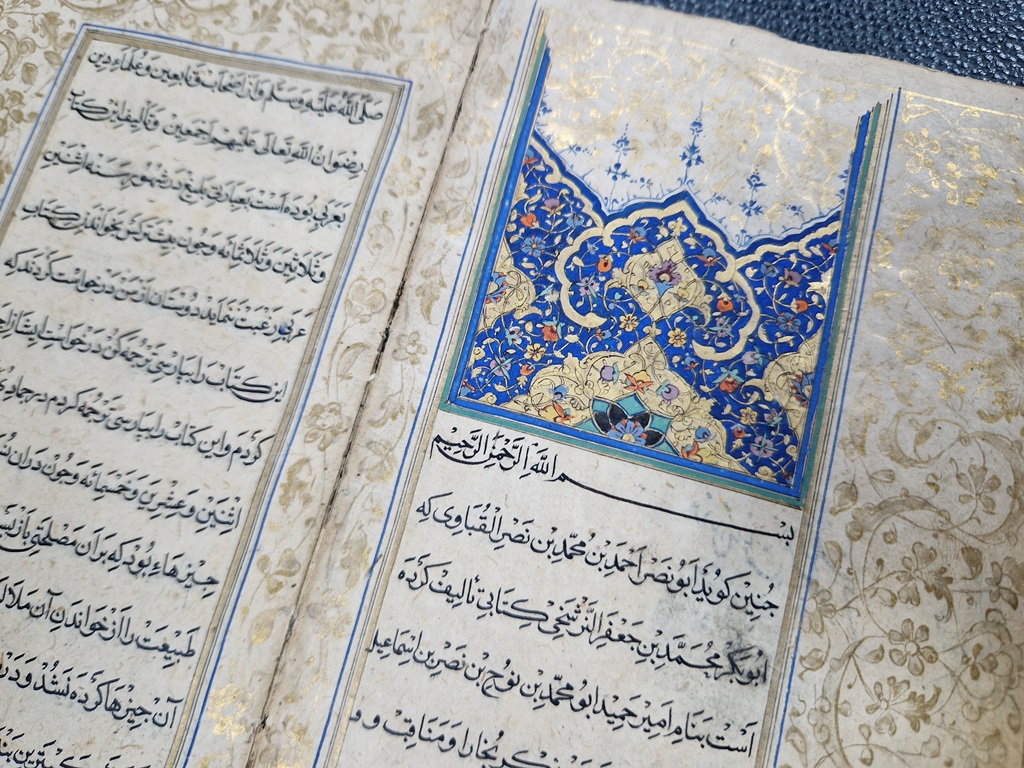 بسم الله الرحمن الرحیم
جنین کوید ابو نصر احمد بن محمد بن نصر القباوی که
ابوبکر محمد بن جعفر النرشخی کتابی تالیف کرده
است بنام امیر حمید ابو محمد بن نوح بن نصر بن اسماعیل
بخارا و مناقب و
صلی الله علیه و سلم و از اصحابه و تابعین و علماء دین
رضوان الله تعالی علیهم اجمعین و تالیف این کتاب
بعربی بوده است بعبارتی بلیغ در شهور سنه اثنین
و ثلاثین و ثلاثمائه و جون بیشتر کس بخواندن کتاب
عربی رغبت ننماید دوستان از من درخواست کردند که
این کتاب را ببارسی ترجمه کن درخواست ایشانرا
کردم و این کتاب را ببارسی ترجمه کردم در جمادی
اثنین و عشرین و خمسمائه و جون در ان
جیزهاء بود که بر ان مصلحتی باز
طبیعت را از خواندن آن ملالت
آن جیزها کرده نشد و